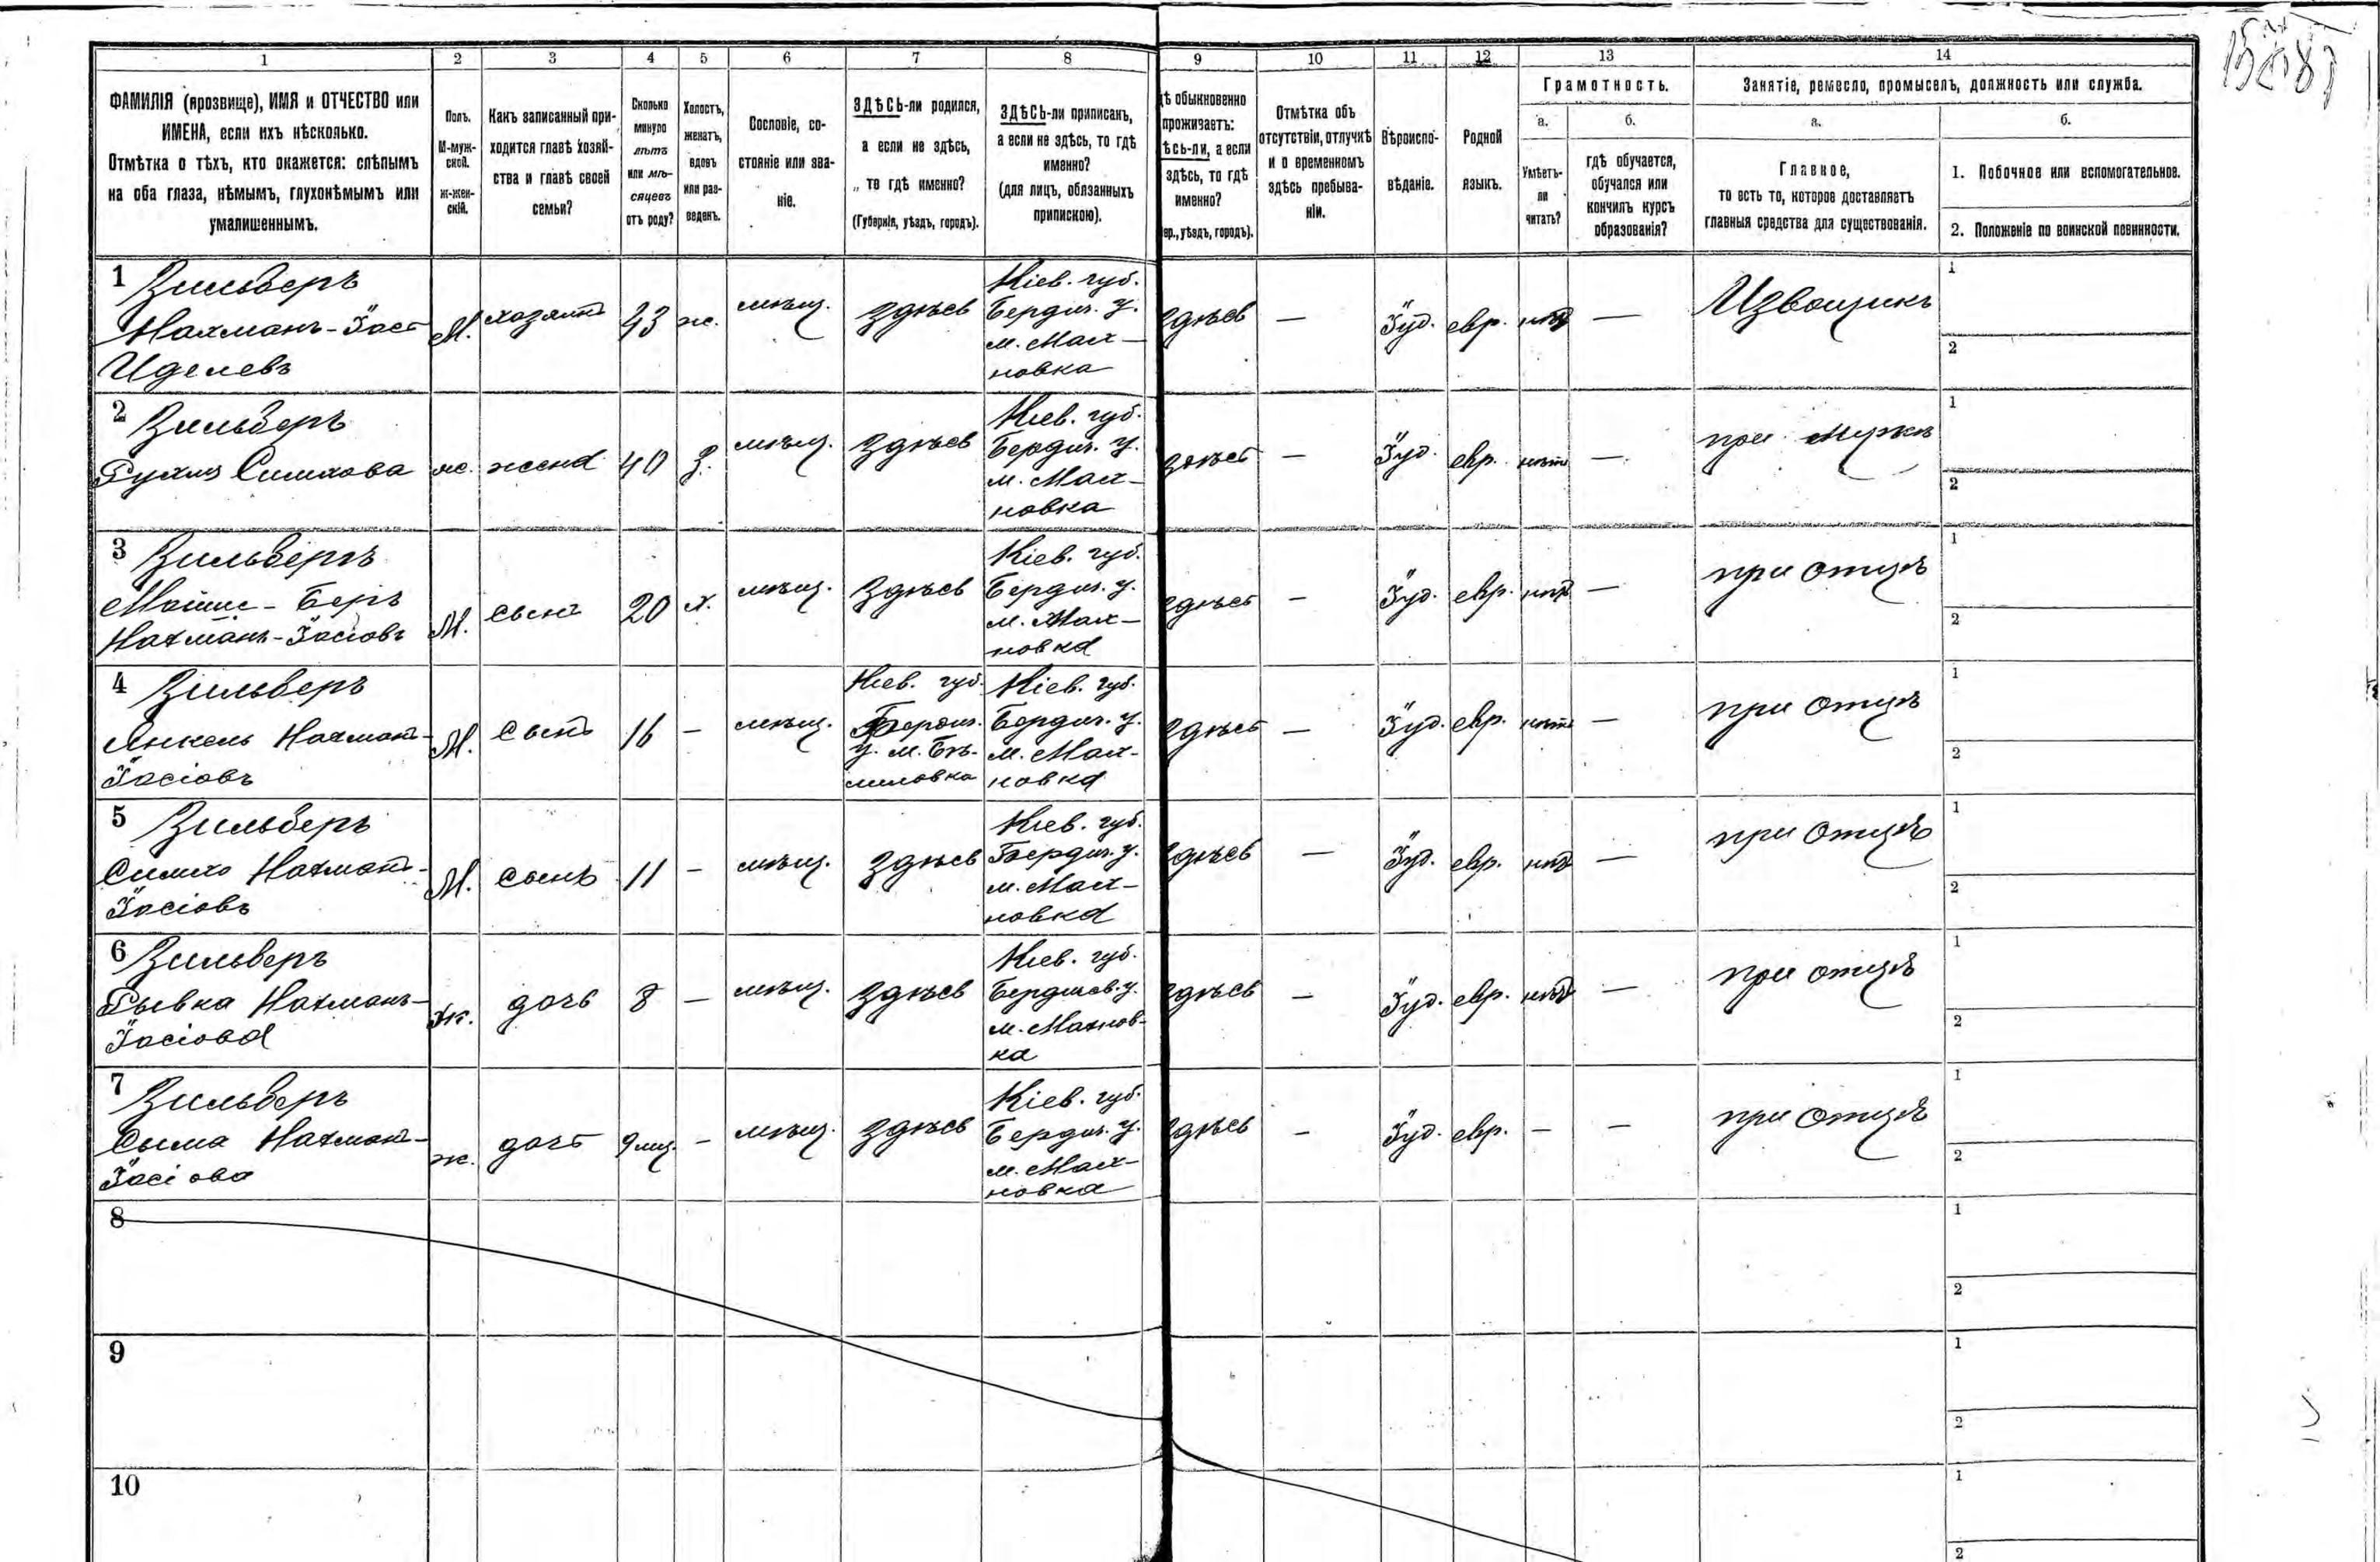 1 2 3 4 5 6 7 8 9 10 11 12 13 14
ФАМИЛІЯ (прозвище), ИМЯ и ОТЧЕСТВО или
ИМЕНА, если ихъ нѣсколько.
Отмѣтка о тѣхъ, кто окажется: слѣпымъ
на оба глаза, нѣмымъ, глухонѣмымъ или
умалишеннымъ.
Полъ.
М-муж-
ской.
ж-жен-
скій.
Какъ записанный при-
ходится главѣ хозяй-
ства и главѣ своей
семьи?
Сколько
минуло
лѣтъ
или мѣ-
сяцевъ
отъ роду?
Холостъ,
женатъ,
вдовъ
или раз-
веденъ.
Сословіе, со-
стояніе или зва-
ніе.
ЗДѢСЬ-ли родился,
а если не здѣсь,
то гдѣ именно?
(Губернія, уѣздъ, городъ).
ЗДѢСЬ-ли приписанъ,
а если не здѣсь, то гдѣ
именно?
(для лицъ, обязанныхъ
припискою).
дѣ обыкновенно
проживаетъ:
ѣсь-ли, а если
здѣсь, то гдѣ
именно?
ер., уѣздъ, городъ).
Отмѣтка объ
отсутствіи, отлучкѣ
и о временномъ
здѣсь пребыва-
ніи.
Вѣроиспо-
вѣданіе.
Родной
языкъ.
Грамотность.
а.
Умѣетъ-
ли
читать?
б.
гдѣ обучается,
обучался или
кончилъ курсъ
образованія?
Занятіе, ремесло, промыселъ, должность или служба.
а.
Главное,
то есть то, которое доставляетъ
главныя средства для существованія.
б.
1. Побочное или вспомогательное.
2. Положеніе по воинской повинности.
1 Зильберъ
Нахманъ-Іось
Иделевъ
М.
хозяинъ
43
ж.
мѣщ.
здѣсь
Кіев. губ.
Бердич. у.
м. Мах-
новка
здѣсь
—
Іуд.
евр.
нѣтъ
—
Извощикъ
1
2
2 Зильберъ
Рухля Симхова
ж.
жена
40
з.
мѣщ.
здѣсь
Кіев. губ.
Бердич. у.
м. Мах-
новка
здѣсь
—
Іуд.
евр.
нѣтъ
—
при мужѣ
1
2
3 Зильберъ
Мойше-Беръ
Нахманъ-Іосіовъ
М.
сынъ
20
х.
мѣщ.
здѣсь
Кіев. губ.
Бердич. у.
м. Мах-
новка
здѣсь
—
Іуд.
евр.
нѣтъ
—
при отцѣ
1
2
4 Зильберъ
Янкель Нахманъ-
Іосіовъ
М.
сынъ
16
—
мѣщ.
Кіев. губ.
Бердич.
у. м. Бѣ-
лиловка
Кіев. губ.
Бердич. у.
м. Мах-
новка
здѣсь
—
Іуд.
евр.
нѣтъ
—
при отцѣ
1
2
5 Зильберъ
Симхо Нахманъ-
Іосіовъ
М.
сынъ
11
—
мѣщ.
здѣсь
Кіев. губ.
Бердич. у.
м. Мах-
новка
здѣсь
—
Іуд.
евр.
нѣтъ
—
при отцѣ
1
2
6 Зильберъ
Рывка Нахманъ-
Іосіова
ж.
дочь
8
—
мѣщ.
здѣсь
Кіев. губ.
Бердичев. у.
м. Махнов-
ка
здѣсь
—
Іуд.
евр.
нѣтъ
—
при отцѣ
1
2
7 Зильберъ
Сыма Нахманъ-
Іосіова
ж.
дочь
9 мц.
—
мѣщ.
здѣсь
Кіев. губ.
Бердич. у.
м. Мах-
новка
здѣсь
—
Іуд.
евр.
—
—
при отцѣ
1
2
8
1
2
9
1
2
10
1
2